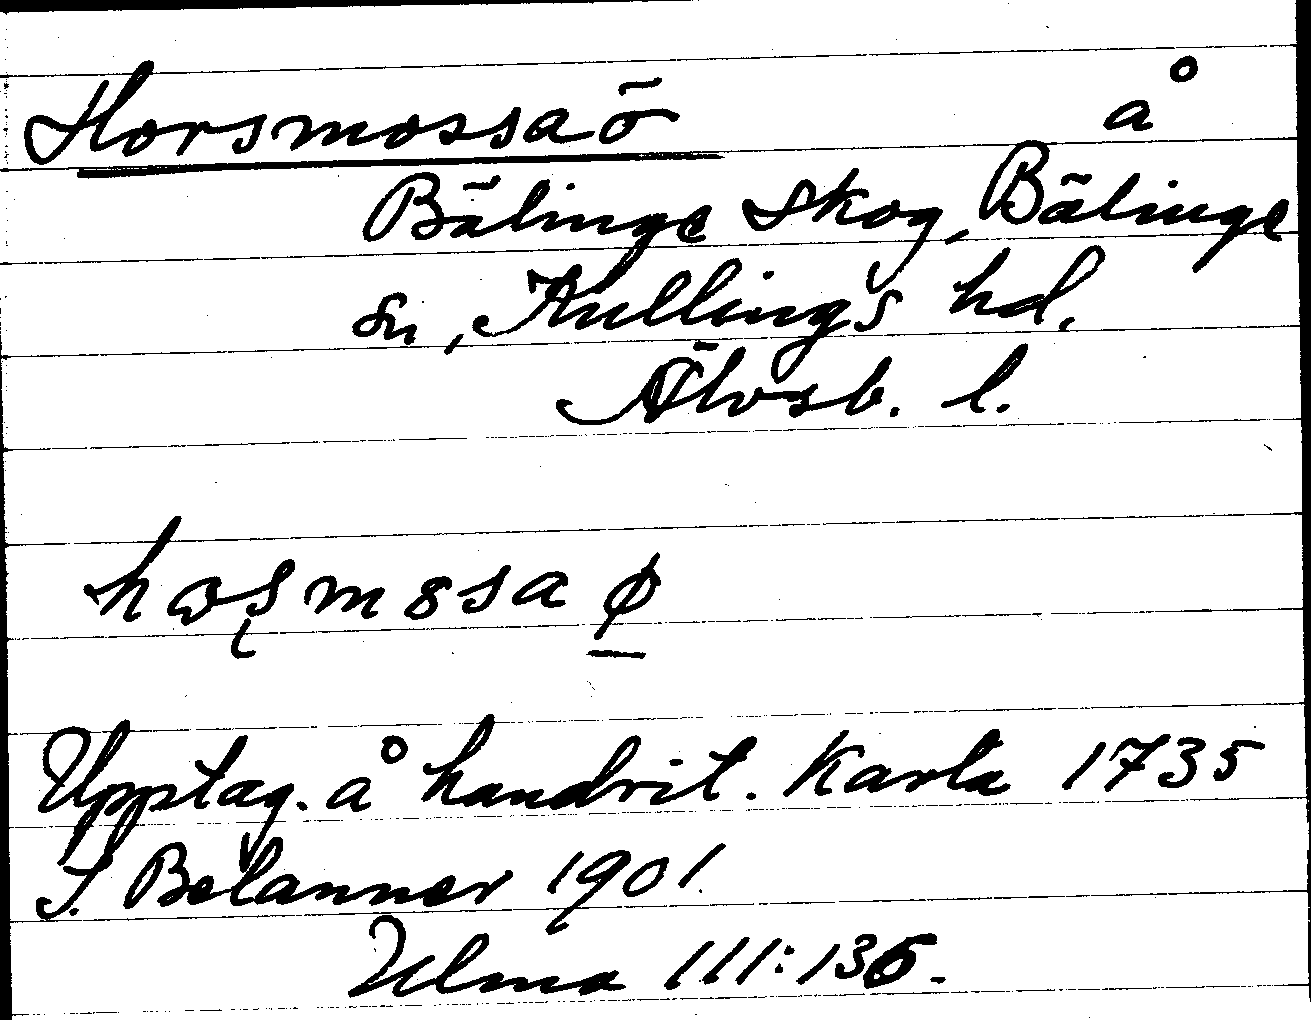 Horsmossaö å
Bälinge Skog, Bälinge
sn, Kullings hd.
Älvsb. l.
hɷʂmɞsa ø
Upptag. å handrit. Karta 1735
S. Belanner 1901
Ulma 111:136.